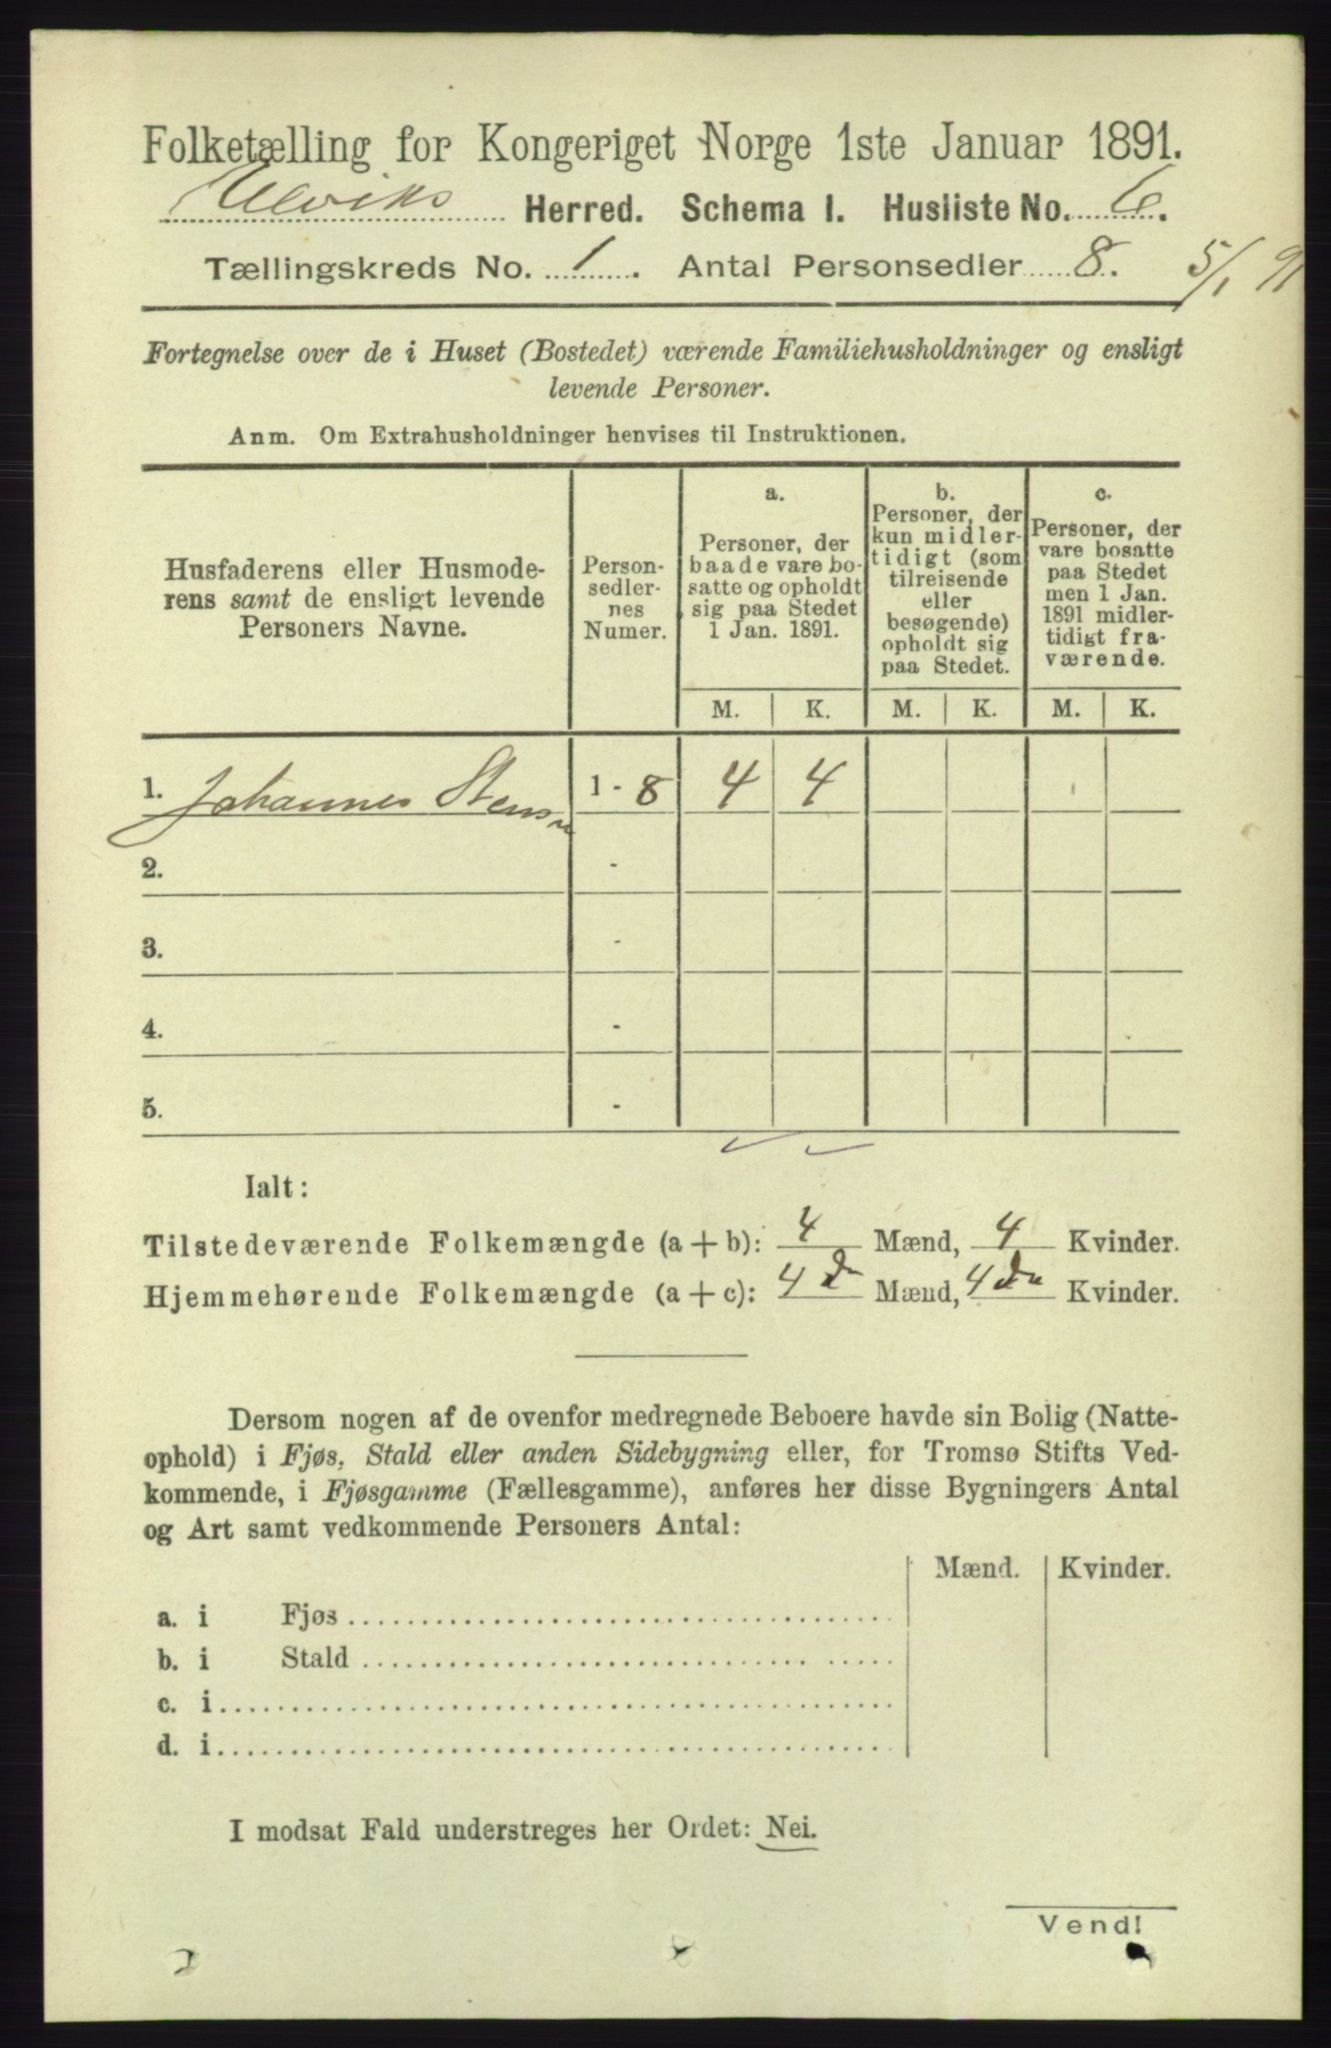 Folketælling for Kongeriget Norge 1ste Januar 1891.
Ulviks Herred. Schema I. Husliste No. 6.
Tællingskreds No. 1. Antal Personsedler 8. 5/1 91
Fortegnelse over de i Huset (Bostedet) værende Familiehusholdninger og ensligt
levende Personer.
Anm. Om Extrahusholdninger henvises til Instruktionen.
Husfaderens eller Husmode-
rens samt de ensligt levende
Personers Navne.
Person-
sedler-
nes
Numer.
a.
Personer, der
baade vare bo-
satte og opholdt
sig paa Stedet
1 Jan. 1891.
b.
Personer, der
kun midler-
tidigt (som
tilreisende
eller
besøgende)
opholdt sig
paa Stedet.
c.
Personer, der
vare bosatte
paa Stedet
men 1 Jan.
1891 midler-
tidigt fra-
værende.
M. K. M. K. M. K.
1. Johannes Stens 1 - 8 4 4
2. -
3. -
4. -
5. -
Ialt:
Tilstedeværende Folkemængde (a + b): 4 Mænd, 4 Kvinder.
Hjemmehørende Folkemængde (a + c): 4 Mænd, 4 Kvinder.
Dersom nogen af de ovenfor medregnede Beboere havde sin Bolig (Natte-
ophold) i Fjøs, Stald eller anden Sidebygning eller, for Tromsø Stifts Ved-
kommende, i Fjøsgamme (Fællesgamme), anføres her disse Bygningers Antal
og Art samt vedkommende Personers Antal:
Mænd. Kvinder.
a. i Fjøs
b. i Stald
c. i
d. i
I modsat Fald understreges her Ordet: Nei.
Vend!